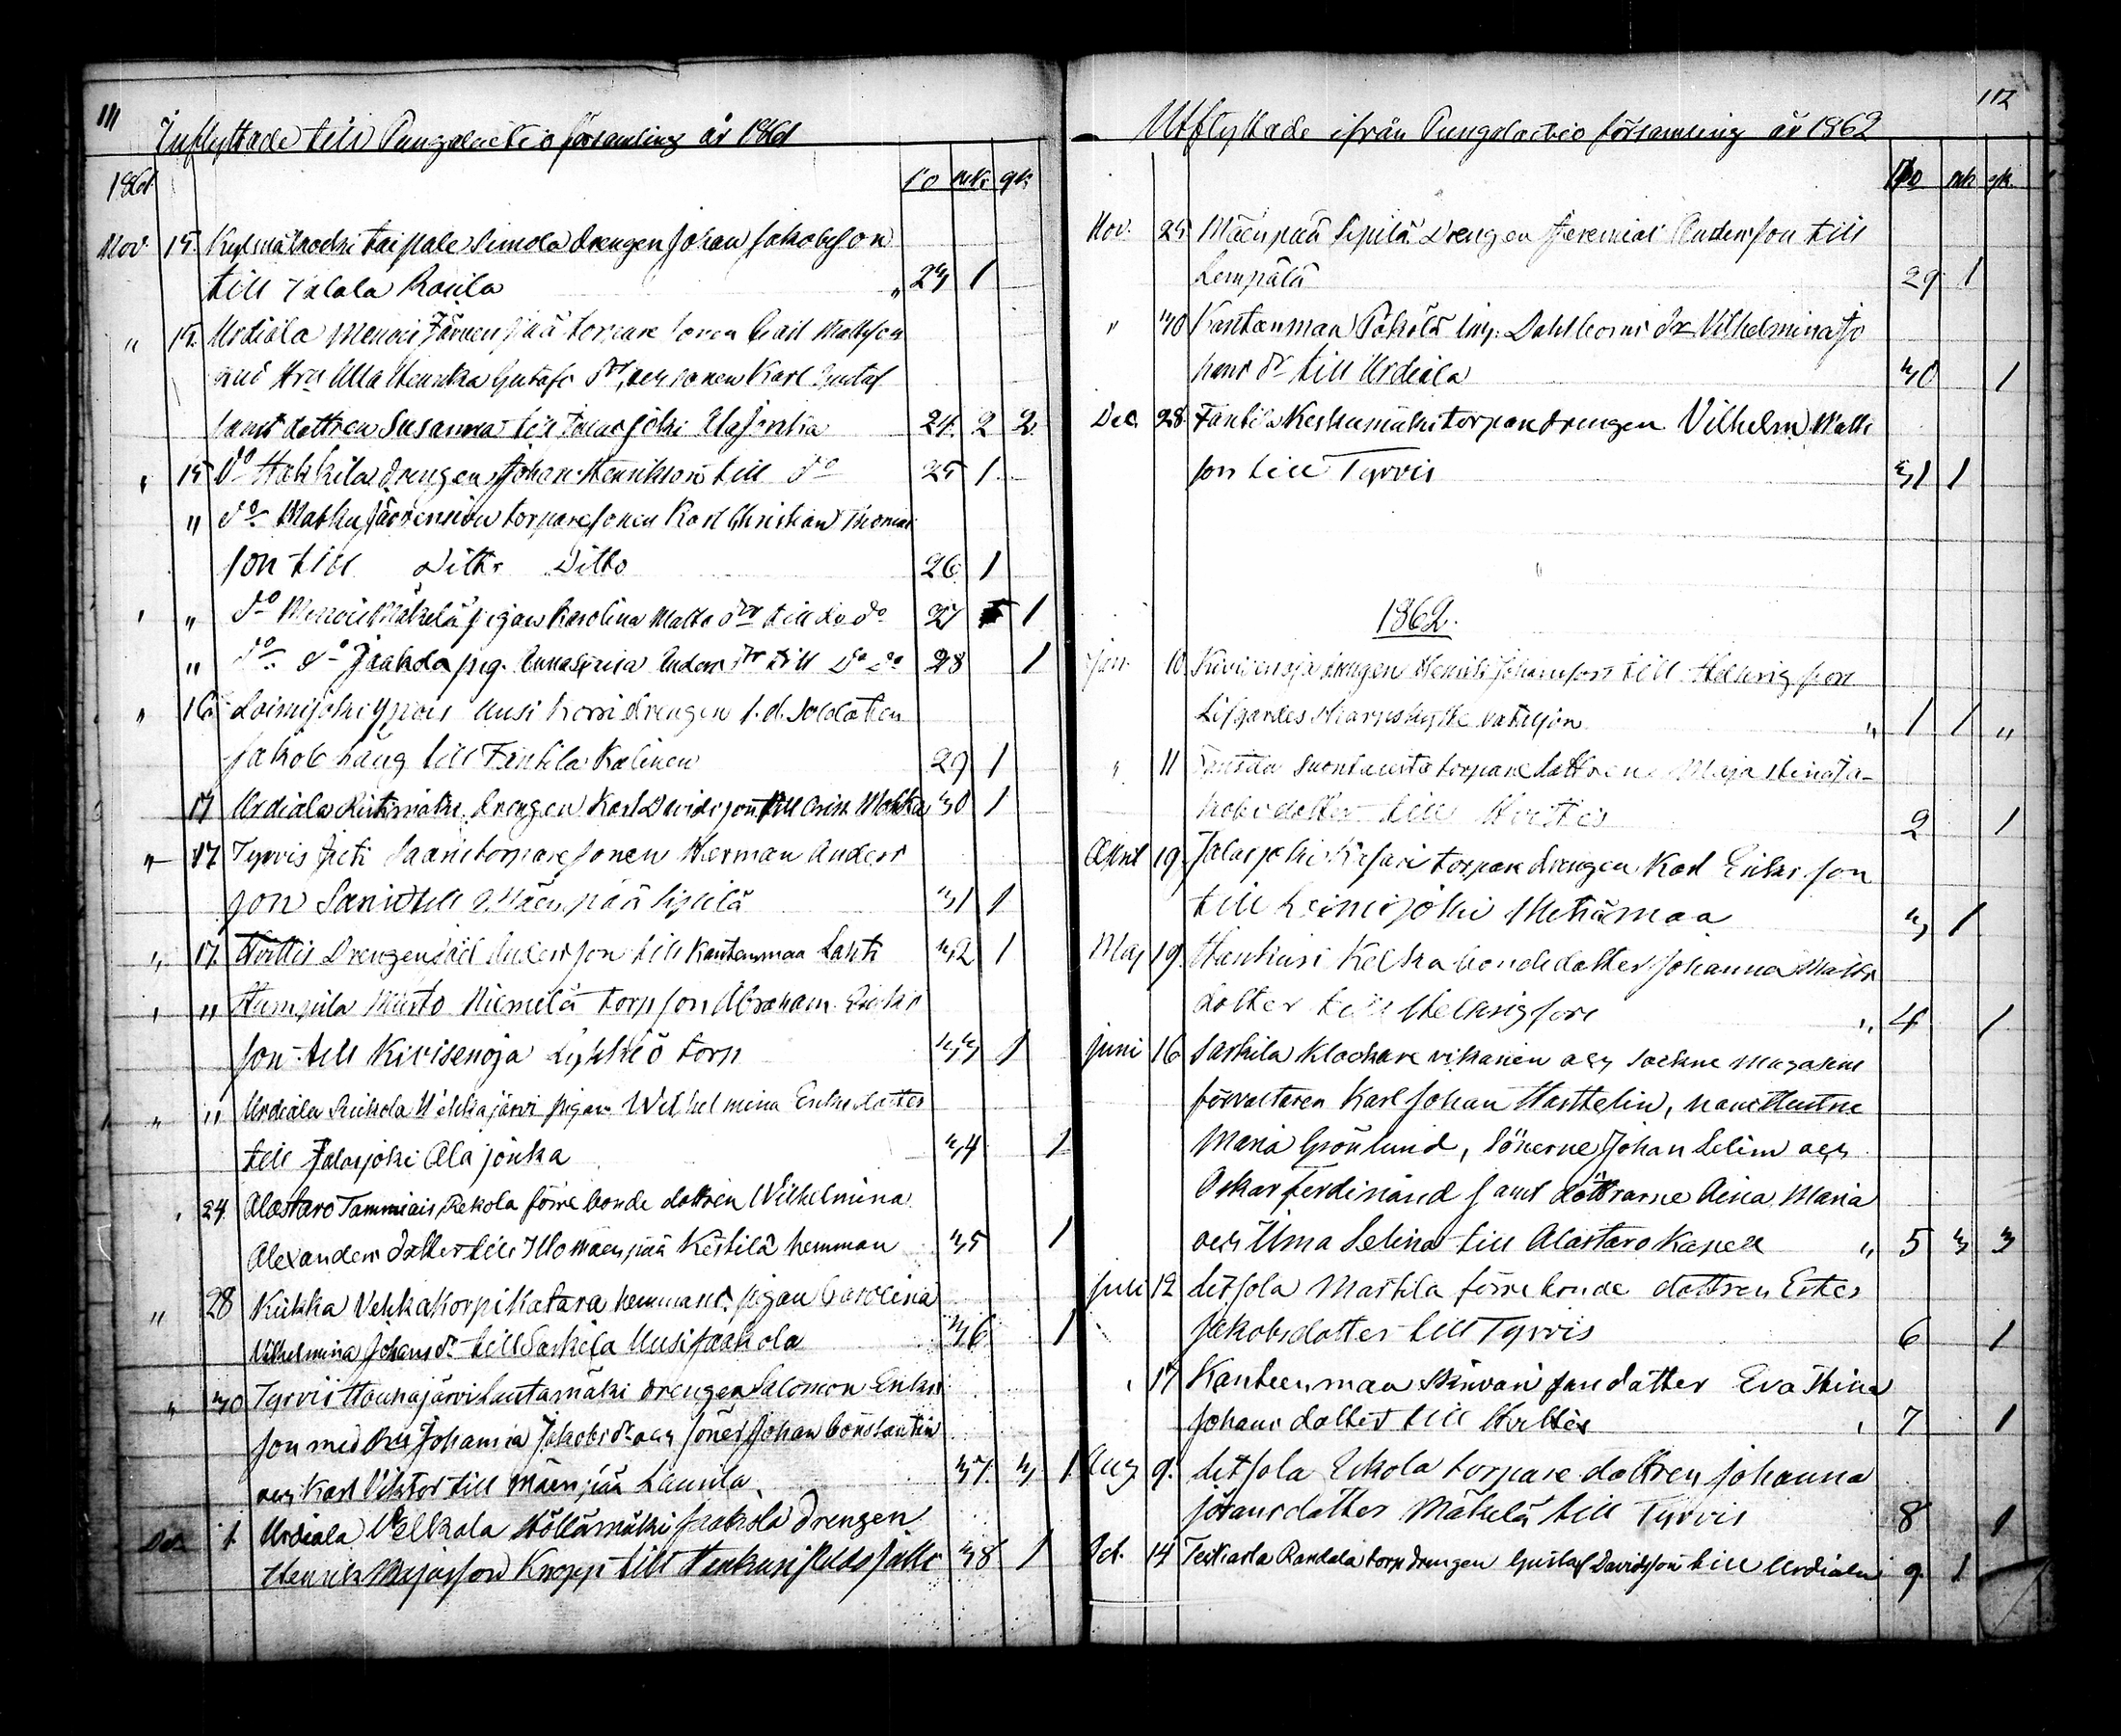 111
Inflyttade till Pungalaitio församling år 1861
1861 No mk qk
Nov 15. Kylmäkoski Taipale Simola drengen Johan Jakobsson
till Talala Rosila " 23 1
" 15. Urdiala Menois Järvenpää torpare sonen Gail Mattsson
med Hru Ulla Henrika Gustafs dr, och sonen Karl Gustaf
samt dottren Susanna till Jalasjoki Alajonka 24. 2 2.
" 15 Do Hakkila drengen Johan Henriksson till do 25 1
" do Matku torparesonen Karl Christian Thomas
son till Ditto Ditto 26 1
" " do Menois Mäkelä pigan Karolina Matts dtr till do do 27 1
" do do Jaakola pig. Anna Anders dtr till Do Do 28 1
" 16. Loimijoki Ypois Uusi Korri drengen f.d. Soldaten
Jakob Häng till Fantila Kalinen 29 1
17 Urdiala drengen Karl Davidsson till 30 1
" 17 Tyrvis torparesonen Herman Anders
son till Mäenpää Sipilä 31 1
" 17. Hvittis Drengen Andersson till Kantanmaa Lahti 32 1
" " Humpila Murto Niemilä torpson Abraham Eriks
son till Kivisenoja torp 33 1
" " Urdiala pigan Wilhelmina Eriksdotter
till Jalasjoki Ala jonka 34 1
" 24. Alastaro Tammiais Rekola förre bonde dottren Wilhelmina
Alexanders dotter till Illo Mäenpää Kestilä hemman 35 1
" 28 Kiikka Vehkakorpi Katara hemmans pigan Carolina
Vilhelmina Johans dr till Sarkila Uusi Jaakola 36 1
" 30 Tyrvis Houhajärvi Santamäki drengen Salomon Eriks
son med Hu Johanna Jakobs dr och söner Johan Constantin
och Karl Viktor till Mäenpää Launla 37. 3 1
Dec 1. Urdiala Velkala Jaakola Drengen
Henrik Knopp till Hankuri 38 1
112
Utflyttade ifrån Pungalaitio församling år 1862
No mk qk.
Nov. 25 Mäenpää Sipilä Drengen Jeremias Andersson till
Lempälä 29 1
" 30 Kantanman Pökölä Dahlboms dr Vilhelmina Jo
hans dr till Urdiala 30 1
Dec. 28. Fantila Keskumäki torpardrengen Vilhelm Matts
son till Tyrvis 31 1
1862.
Jan. 10. Kivisenoja drengen Henrik Johansson till Helsingfors
Lifgardes skarpskytte bataljon " 1 1 "
" 11 Fantila torpare dottren Maja Stina Ja-
kobsdotter till Hvittis 2 1
April 19. Jalasjoki torpare drengen Karl Eriksson
till Loimijoki Metsämaa 3 1
Maj 19. Hankuri Kelkka bondedotter Johanna Matts
dotter till Helsingfors " 4 1
Juni 16 Sarkila Klockare vikarien och Sockne magasins
förvaltaren Karl Johan Harthelin, hans Hustru
Maria Grönlund, Sönerne Johan Selim och
Oskar Ferdinand samt döttrarne Aina Maria
och Alma Selina till Alastaro Kapell " 5 3 3
Juli 12 Litsola Martila förre bonde dottren Ester
Jakobsdotter till Tyrvis 6 1
" 17 Kanteenmaa Skinnari fan dotter Eva Stina
Johans dotter till Hvittis 7 1
Aug 9. Litsola Erkola torpare dottren Johanna
Göransdotter Mäkelä till Tyrvis 8 1
Oct. 14 Teikarla Randala torp drengen Gustaf Davidsson till Urdiala 9. 1